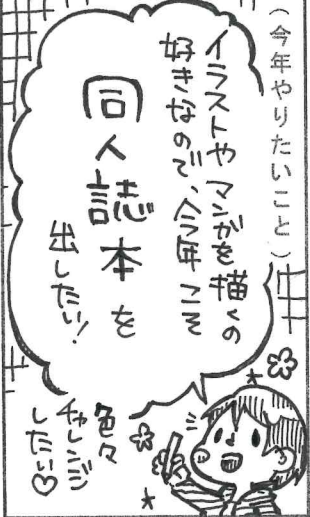 (今年やりたいこと)
イラストやマンガを描くの
好きなので、今年こそ
同人誌本を
出したい!
色々
チャレンジ
したい♡